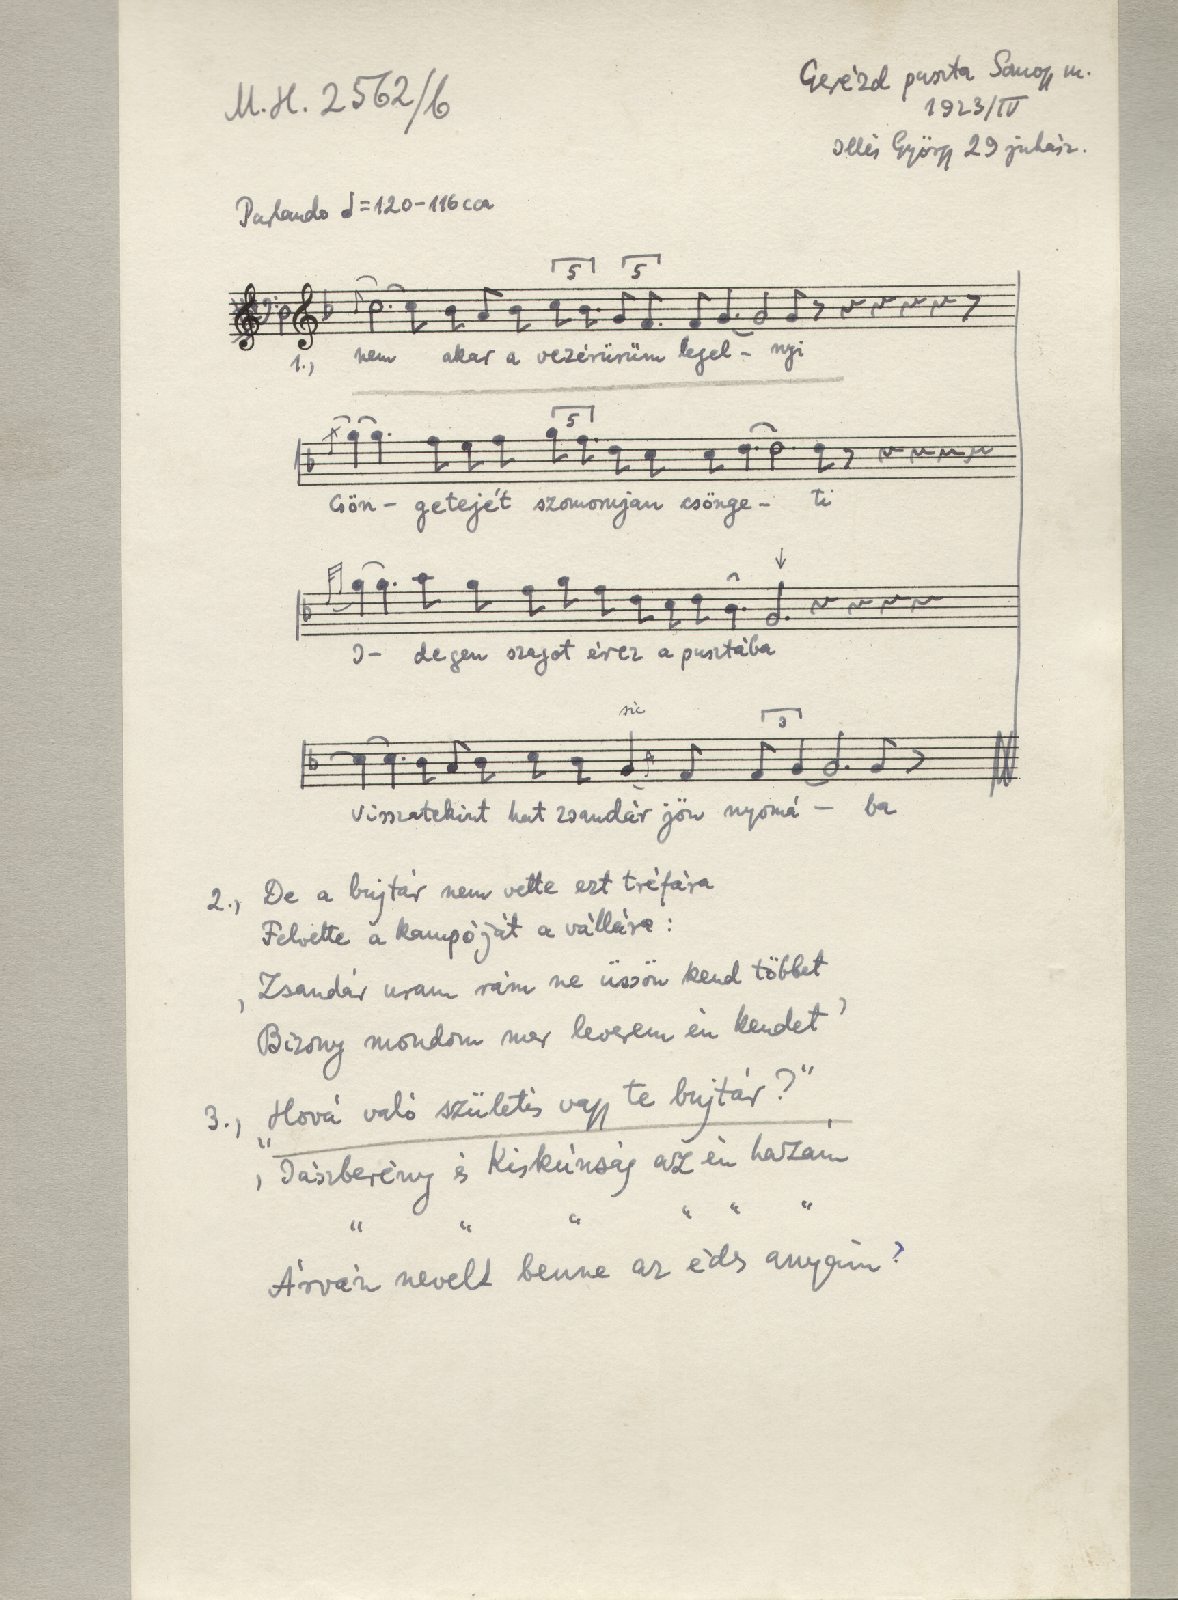 M.H. 2562/b
Gerézd puszta Somogy m.
1923/IV
Illés György 29 juhász.
Parlando ♩=120-116 cca
5 5
1., nem akar a vezérürüm legel - nyi
5
Csön - getejét szomorujan csönge - ti
I - degen szagot érez a pusztába
sic 3
Visszatekint hat zsandár jön nyomá - ba
2., De a bujtár nem vette ezt tréfára
Felvette a kampóját a vállára :
‚ Zsandár uram rám ne üssön kend többet
Bizony mondom mer leverem én kendet ’
3., „Hová való születés vagy te bujtár ?"
‚ Jászberény és Kiskúnság az én hazám
" " " " " "
Árván nevelt benne az édes anyám ’